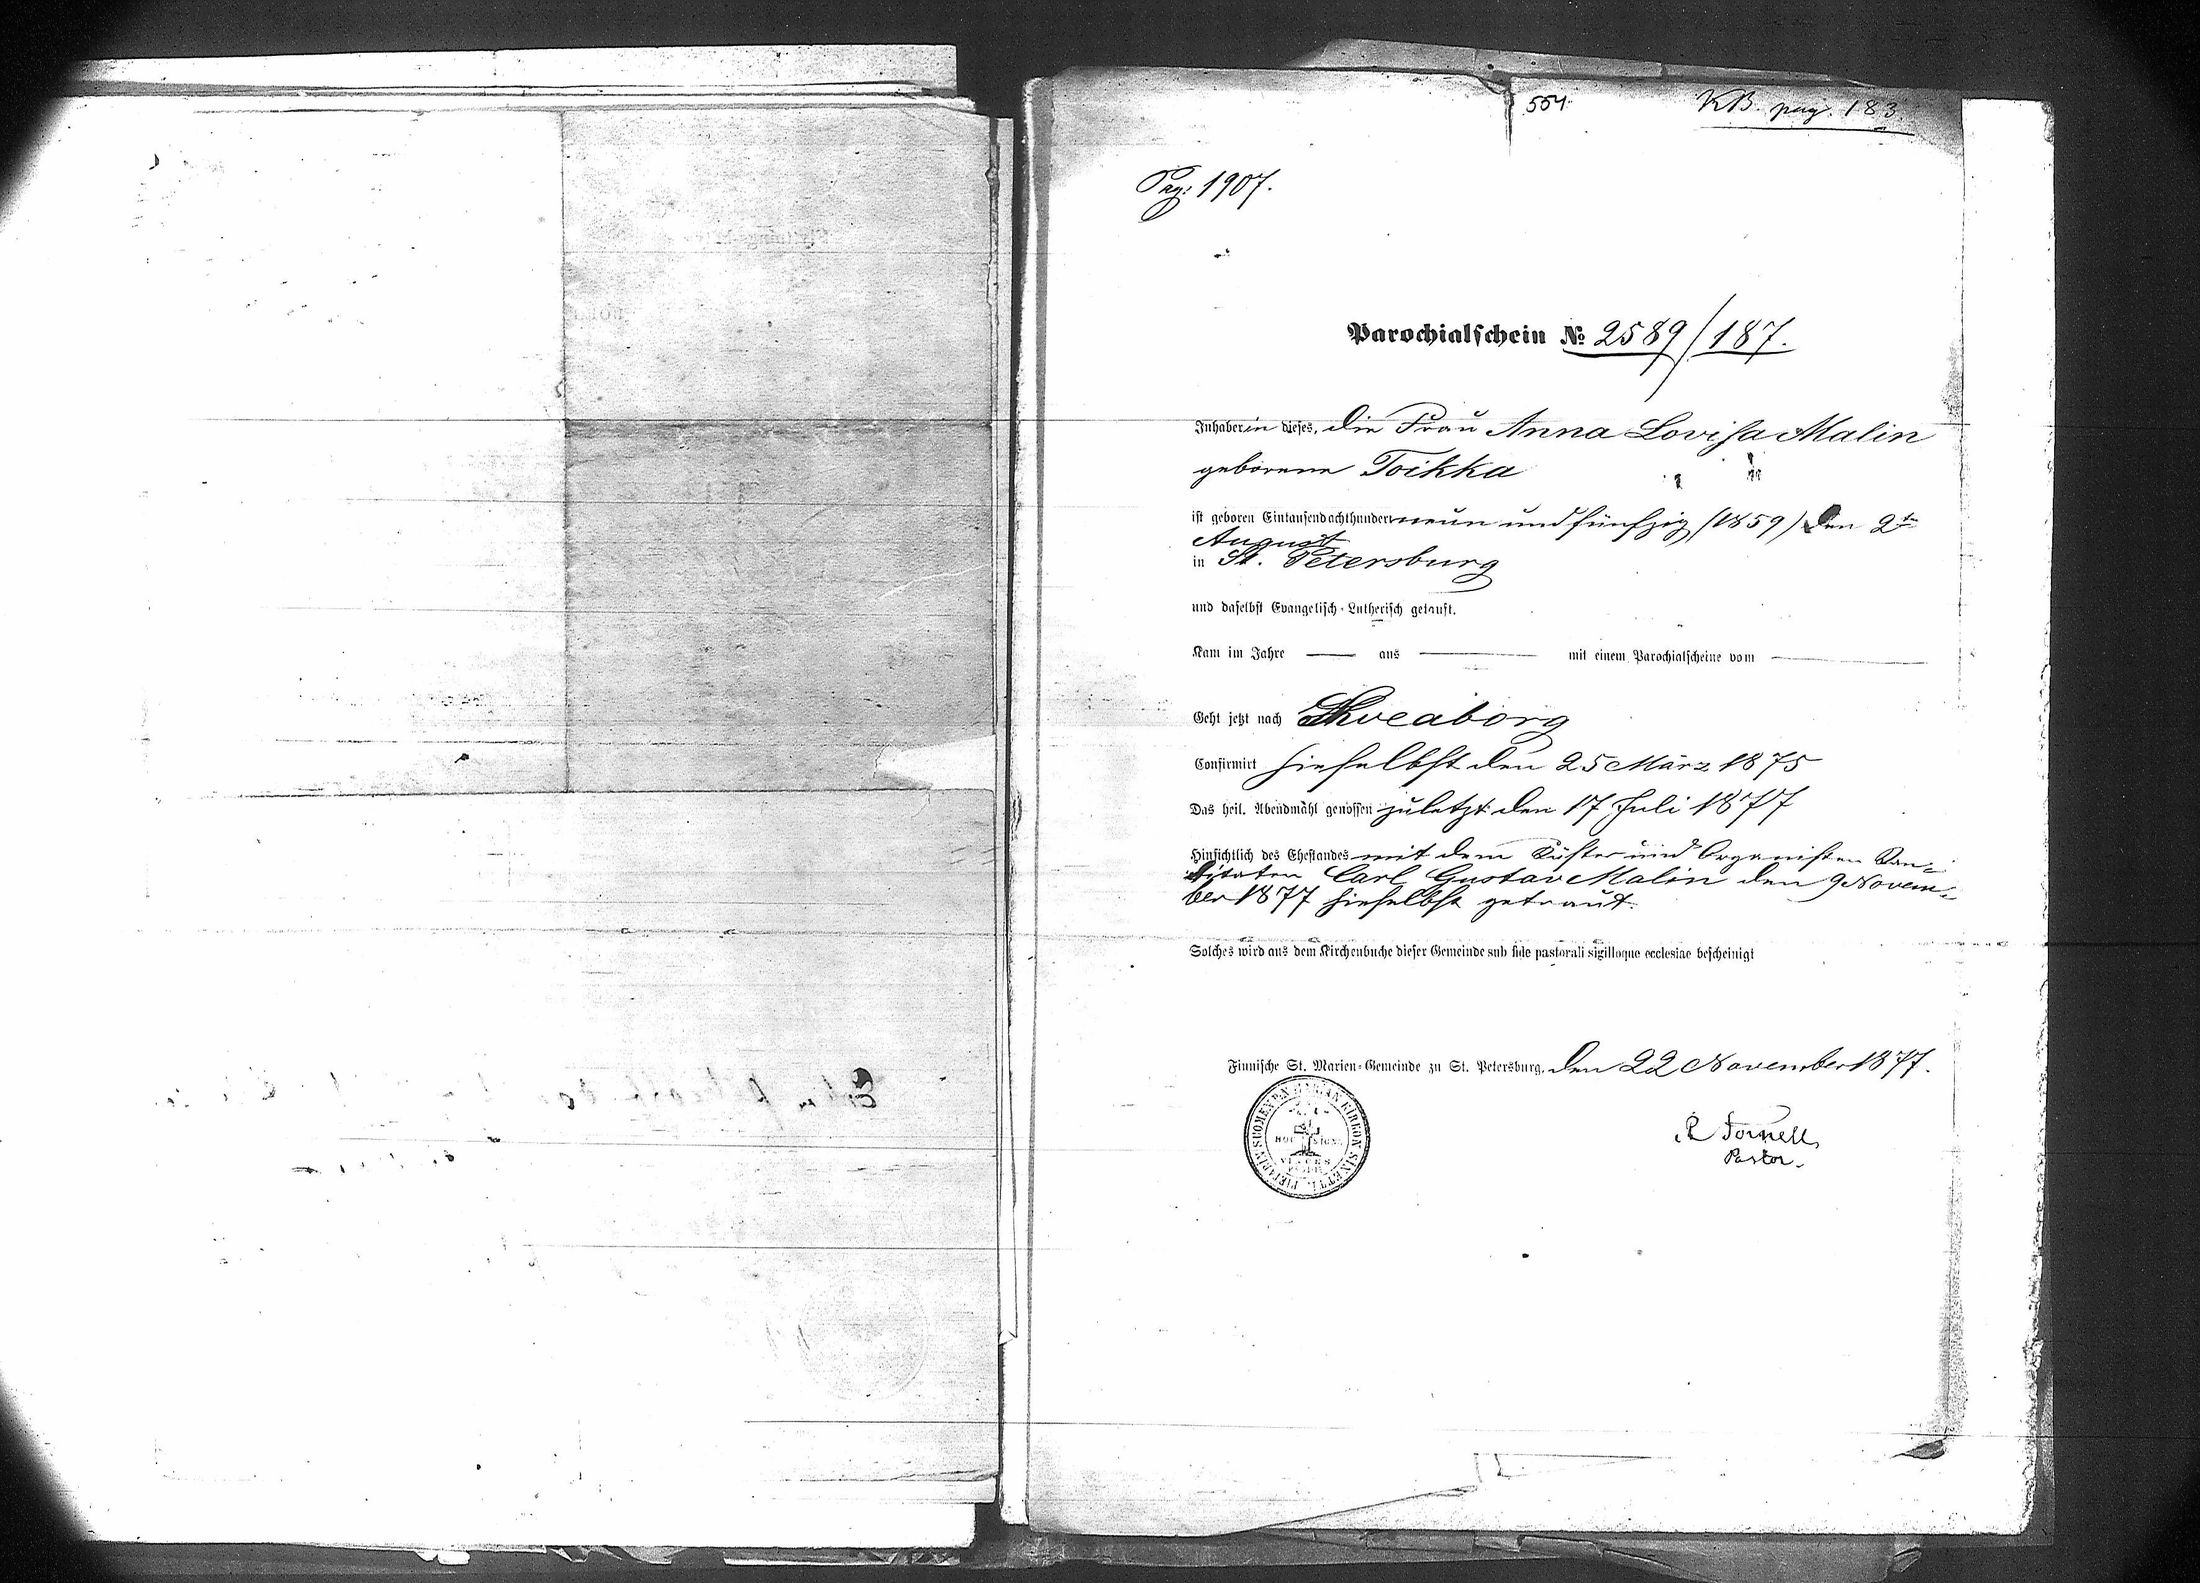 554.
KB. pag. 183
Pag: 1907.
Parochialschein № 2589/187.
Inhaberin dieses, die Frau Anna Lovisa Malin
geborene Toikka
ist geboren Eintausendachthundert neun und fünfzig (1859) den 2ten
August
in St. Petersburg
und daselbst Evangelisch-Lutherisch getauft.
Kam im Jahre — aus — mit einem Parochialscheine vom —
Geht jetzt nach Sveaborg
Confirmirt hieselbst den 25 März 1875
Das heil. Abendmahl genossen zuletzt den 17 Juli 1877
Hinsichtlich des Ehestandes mit dem Küster und Organisten Can-
didaten Carl Gustav Malin den 9 Novem-
ber 1877 hieselbst getraut.
Solches wird aus dem Kirchenbuche dieser Gemeinde sub fide pastorali sigilloque ecclesiae bescheinigt
Finnische St. Marien-Gemeinde zu St. Petersburg, den 22 November 1877.
HOC SIGNO
VINCES
Pastor.